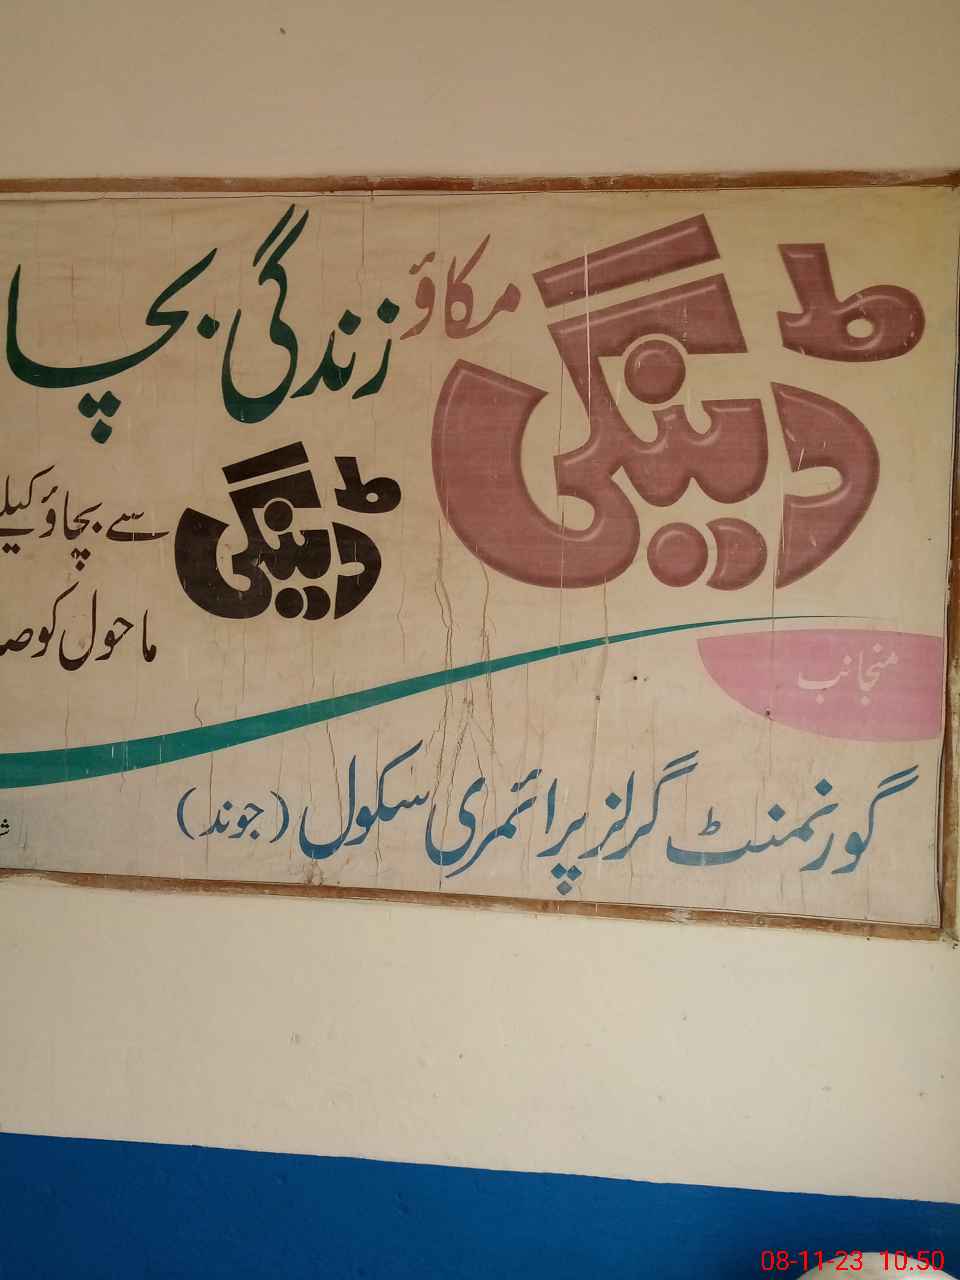 ڈینگی مکاؤ زندگی بچا
ڈینگی سے بچاؤ کیلـ
ماحول کو صـ
منجانب
گورنمنٹ گرلز پرائمری سکول (جوند)
08-11-23 10:50